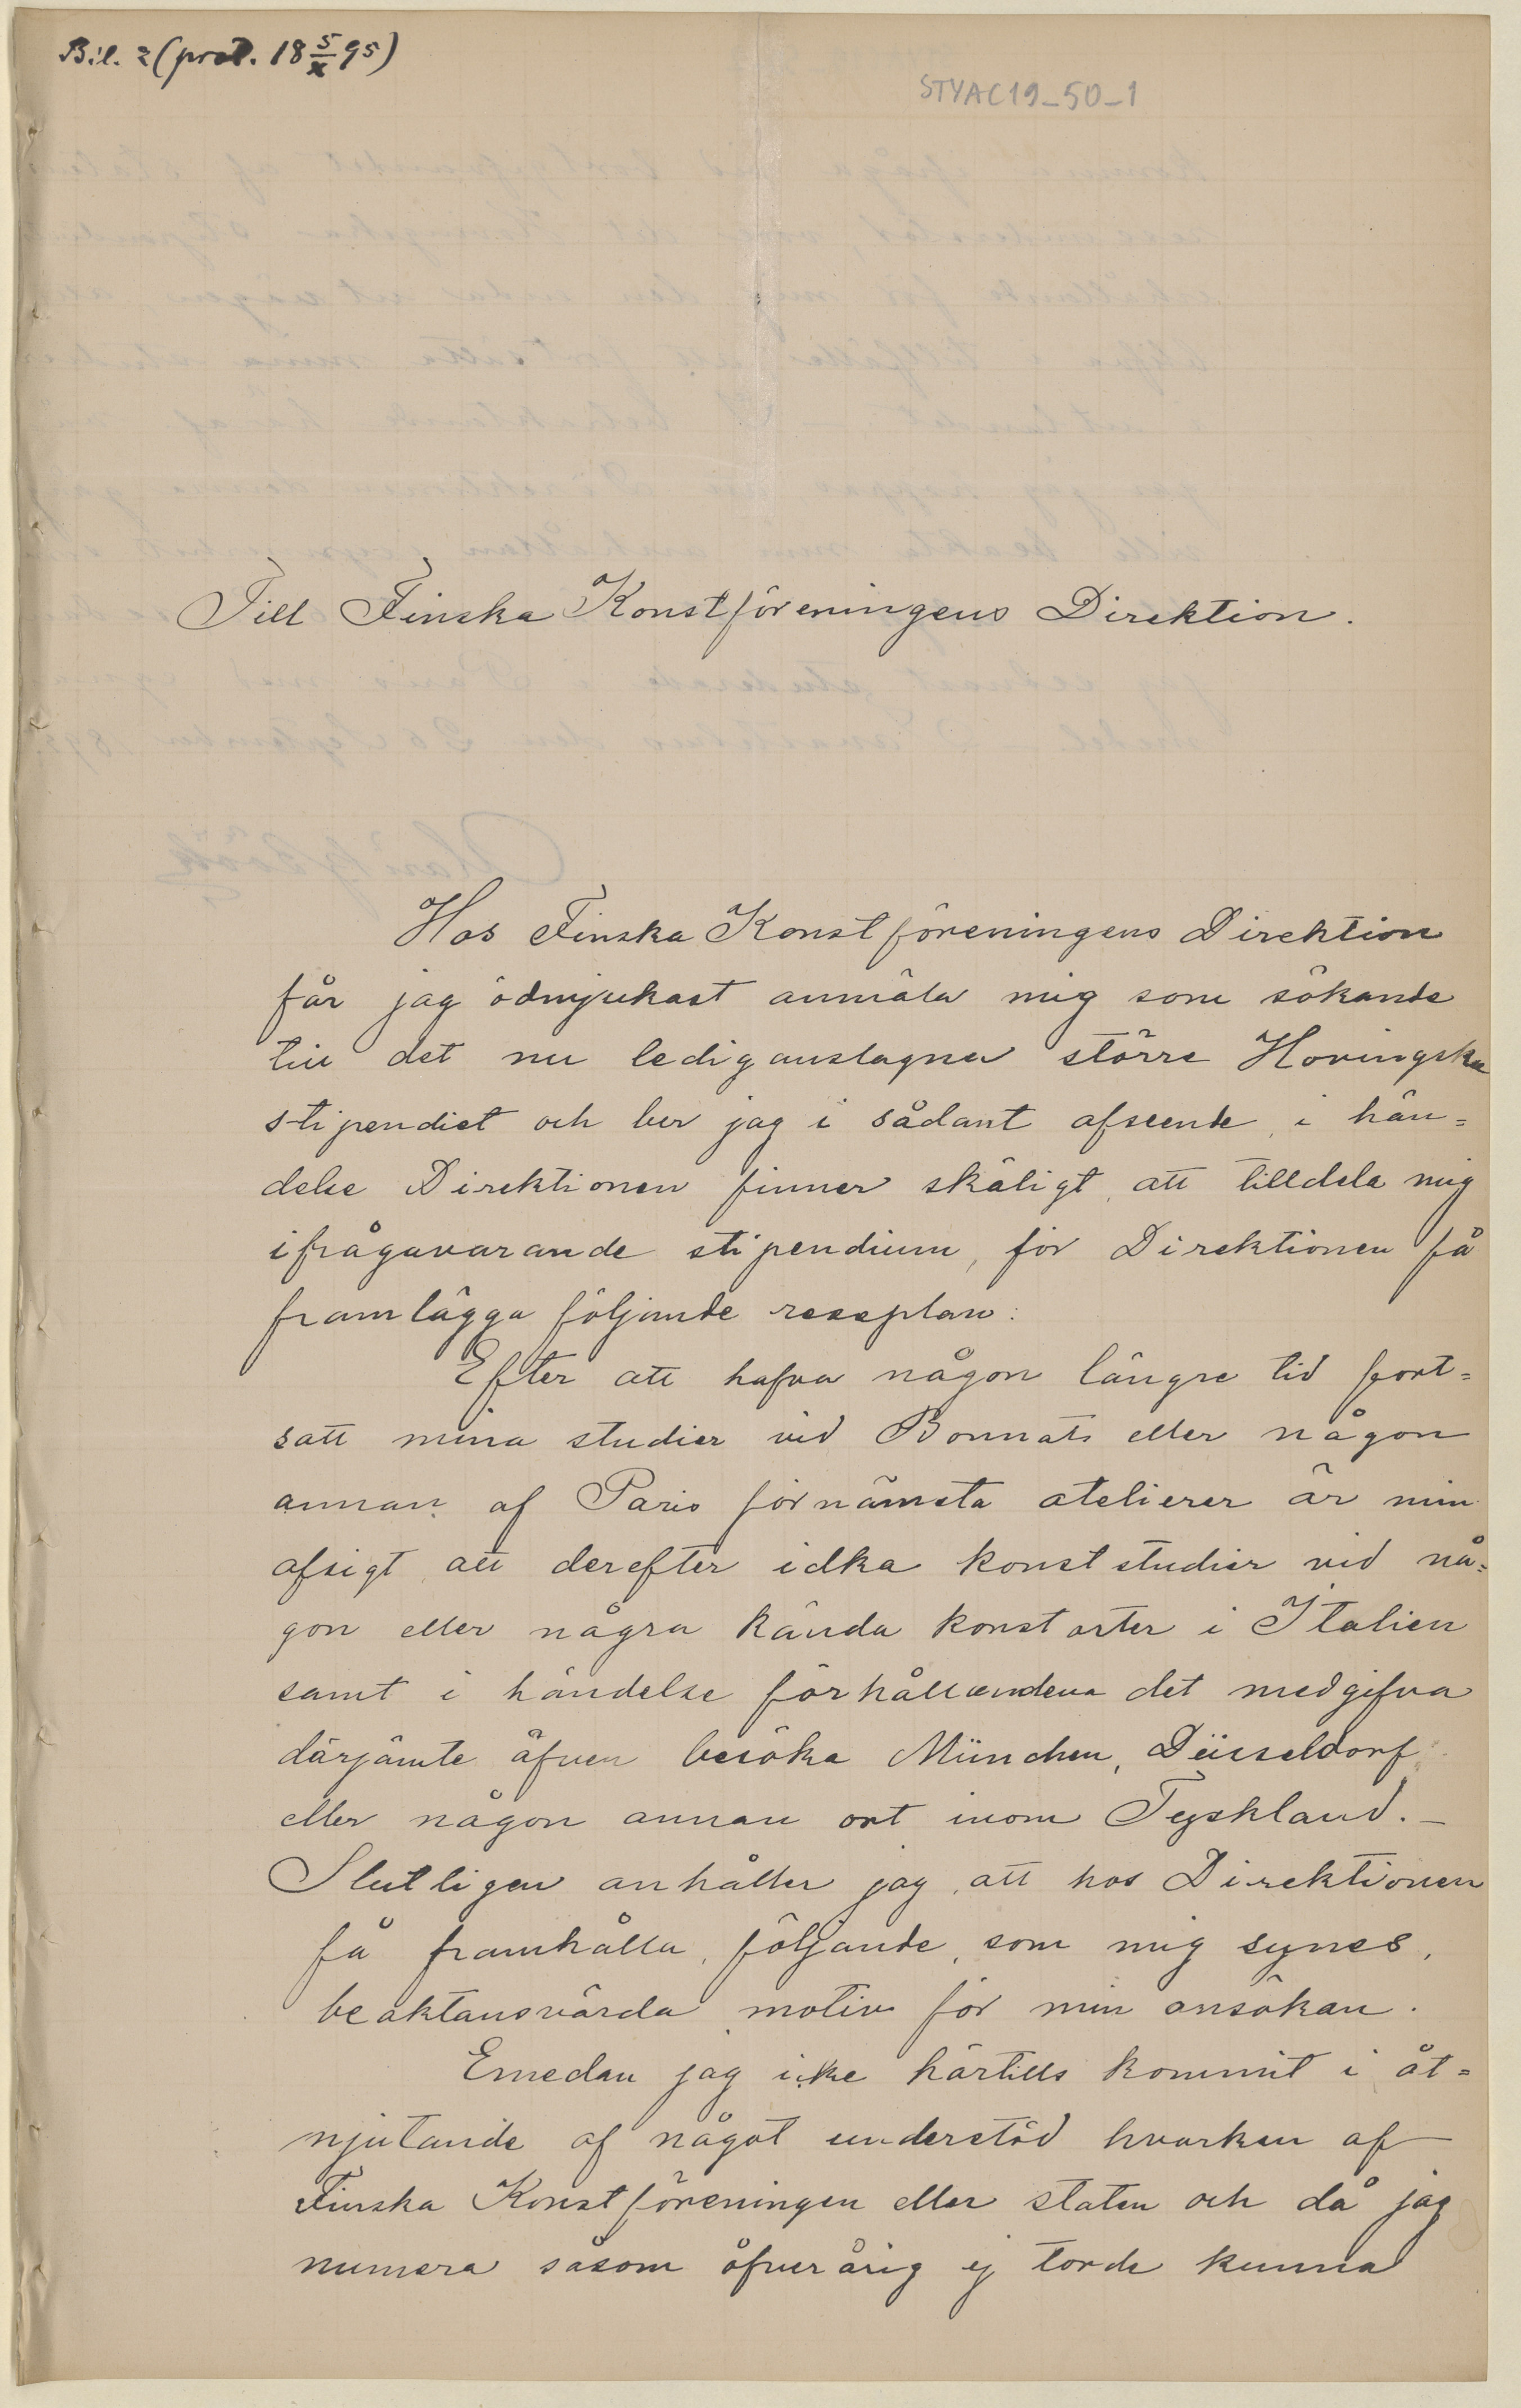 Bil. 2 (prot. 18 5/X 95)
STYAC19_50_1
Till Finska Konstföreningens Direktion.
Hos Finska Konstföreningens Direktion
får jag ödmjukast anmäla mig som sökande
till det nu lediganslagna större Hovingska
stipendiet och ber jag i sådant afseende, i hän=
delse Direktionen finner skäligt, att tilldela mig
ifrågavarande stipendium, för Direktionen få
framlägga följande reseplan:
Efter att hafva någon längre tid fort=
satt mina studier vid Bonnats eller någon
annan af Paris förnämsta atelierer är min
afsigt att derefter idka konststudier vid nå=
gon eller några kända konstorter i Italien
samt i händelse förhållandena det medgifva
därjämte äfven besöka München, Düsseldorf
eller någon annan ort inom Tyskland. –
Slutligen anhåller jag, att hos Direktionen
få framhålla, följande, som mig synes,
beaktansvärda motiv för min ansökan.
Emedan jag icke härtills kommit i åt=
njutande af något understöd hvarken af
Finska Konstföreningen eller staten och då jag
numera såsom öfverårig ej torde kunna